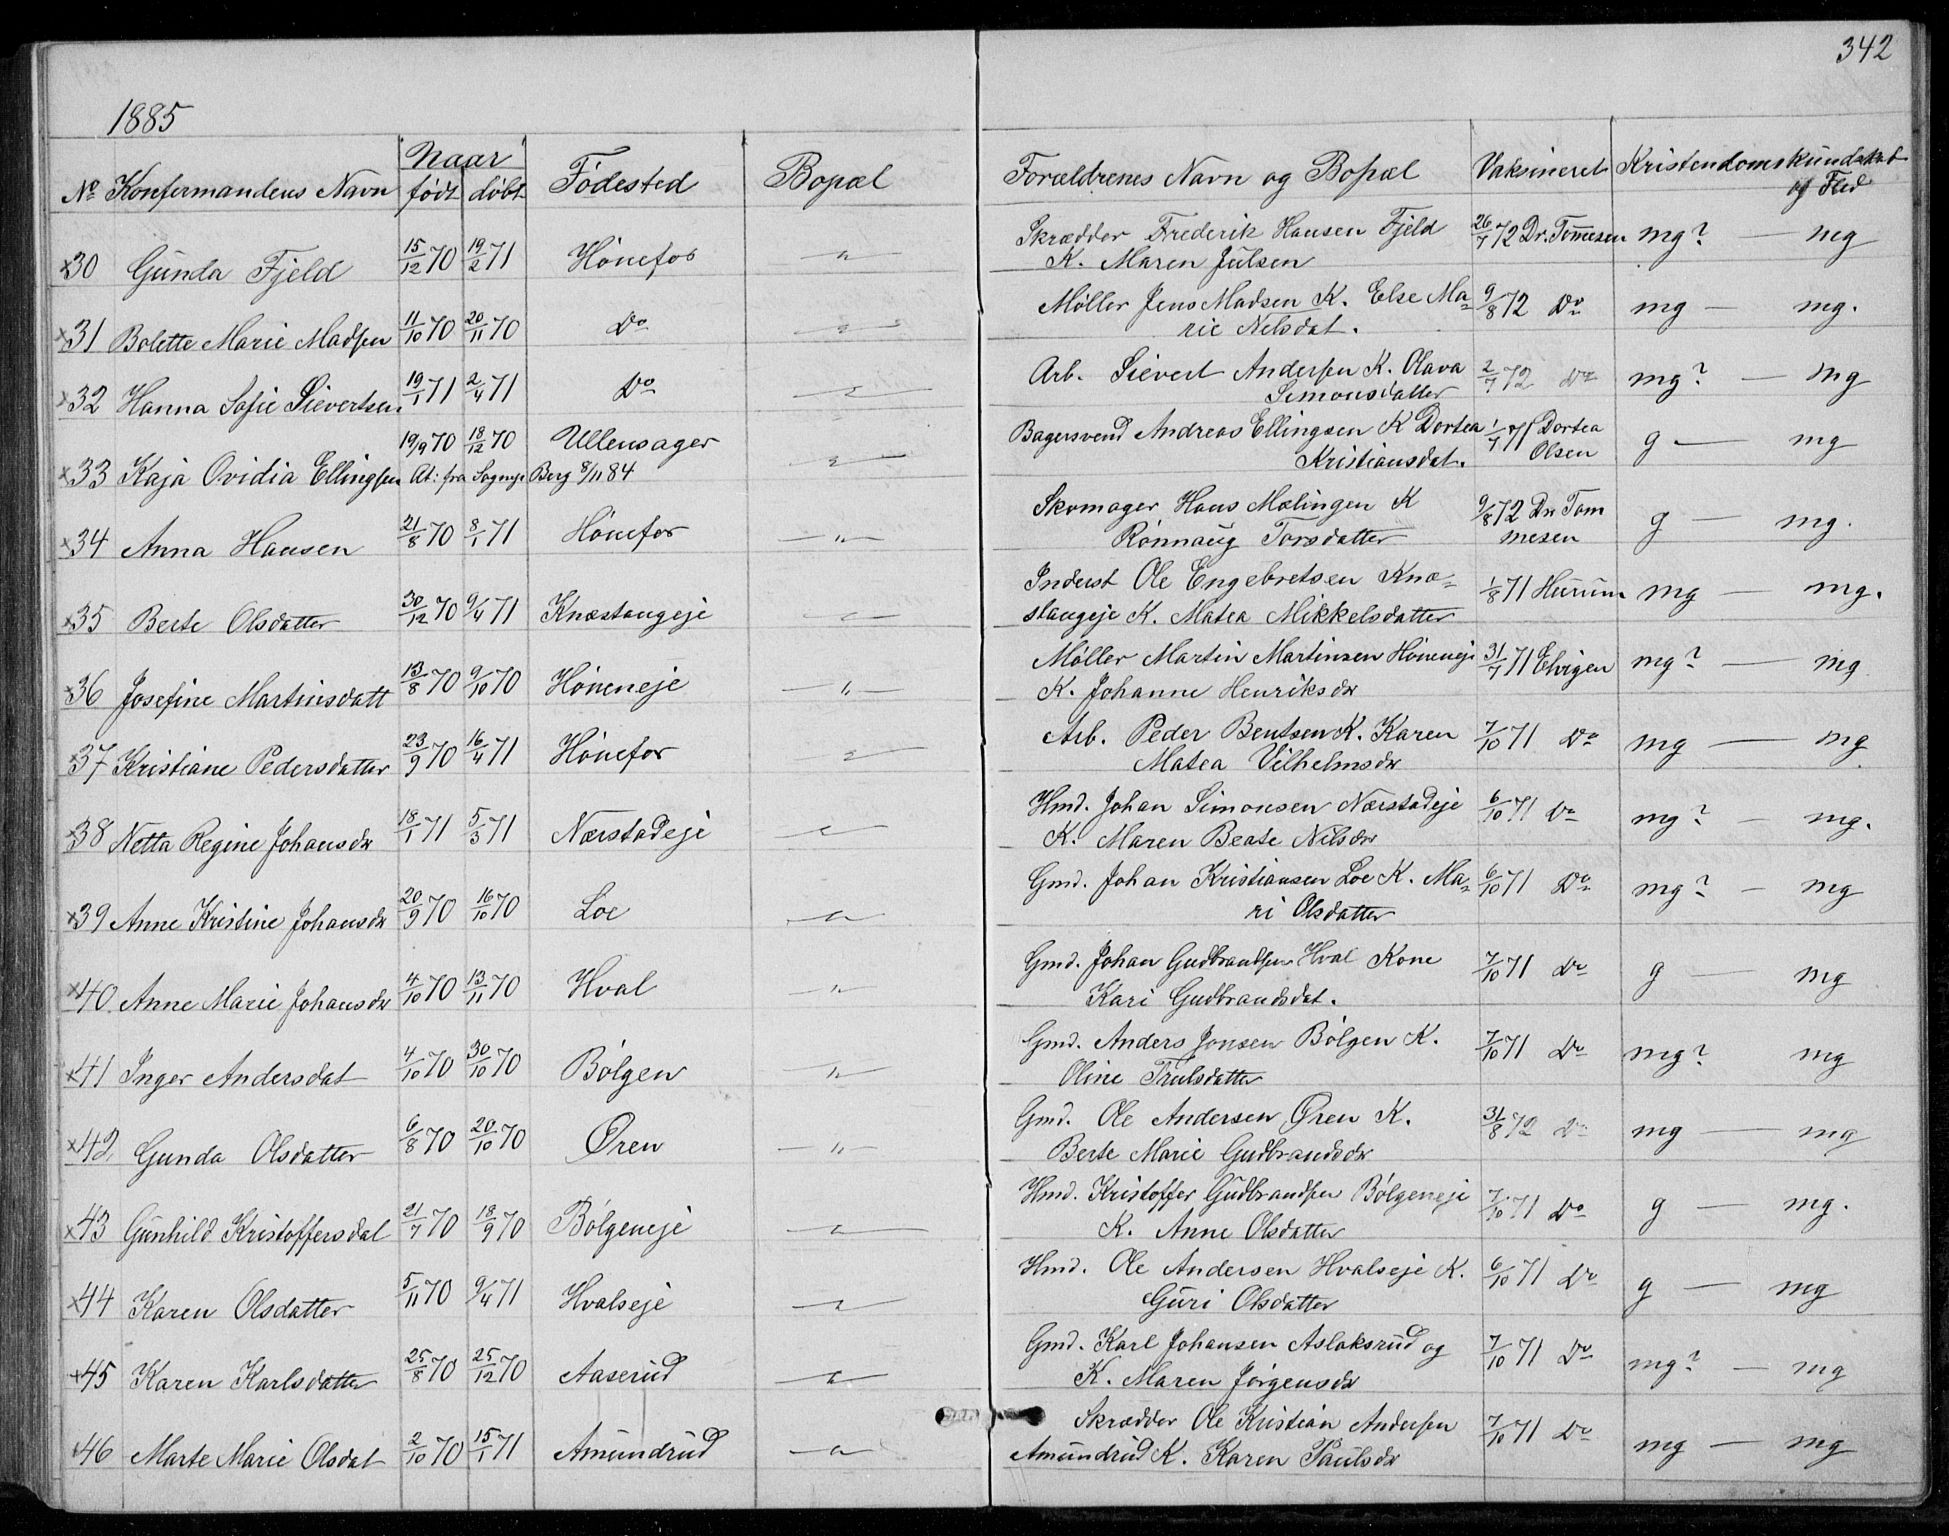 342
1885
No Konfirmandens Navn | Naar født | døbt | Fødested | Bopæl | Forældrenes Navn og Bopæl | Vaksineret | Kristendomskundskab
og Flid
30 Gunda Fjeld | 15/12 70 | 19/2 71 | Hønefos | " | Skrædder Frederik Hansen Fjeld | 26/7 72 Dr. Tomesen | mg? — mg
K. Maren Julsen
31 Bolette Marie Madsen | 11/10 70 | 20/11 70 | Do | " | Møller Jens Madsen K. Else Ma- | 9/8 72 Do | mg — mg.
rie Nelsdat.
32 Hanna Sofie Sievertsen | 19/1 71 | 2/4 71 | Do | " | Arb. Sievert Andersen K. Olava | 2/7 72 Do | mg? — mg
Simonsdatter
33 Kaja Ovidia Ellingsen | 19/9 70 | 18/12 70 | Ullensager | " | Bagersvend Andreas Ellingsen K Dortea | 1/7 71 Dortea Olsen | g — mg
At: fra Sognep. Berg 8/11 84 | Kristiansdat.
34 Anna Hansen | 21/8 70 | 8/1 71 | Hønefos | " | Skomager Hans Mælingen K | 9/8 72 Dr. Tom | g — mg.
Rønnaug Torsdatter | mesen
35 Berte Olsdatter | 30/12 70 | 9/4 71 | Knæstangeje | " | Inderst Ole Engebretsen Knæ- | 1/8 71 Hurum | mg — mg.
stangeje K. Matea Mikkelsdatter
36 Josefine Martinsdatt | 13/8 70 | 9/10 70 | Høneneje | " | Møller Martin Martinsen Høneneje | 31/7 71 | mg? — mg
K. Johanne Henriksdr
37 Kristiane Pedersdatter | 23/9 70 | 16/4 71 | Hønefos | " | Arb. Peder Bentsen K. Karen | 7/10 71 Do | mg — mg
Matea Vilhelmsdr
38 Netta Regine Johansdr | 18/1 71 | 5/3 71 | Nærstadeje | " | Hmd. Johan Simonsen Nærstadeje | 6/10 71 Do | mg? — mg.
K. Maren Beate Nilsdr
39 Anne Kristine Johansdr | 20/9 70 | 16/10 70 | Loe | " | Gmd. Johan Kristiansen Loe K. Ma- | 6/10 71 Do | mg? — mg
ri Olsdatter
40. Anne Marie Johansdr | 4/10 70 | 13/11 70 | Hval | " | Gmd. Johan Gudbrandsen Hval Kone | 7/10 71 Do | g — mg
Kari Gudbrandsdat.
41 Inger Andersdat | 4/10 70 | 30/10 70 | Bølgen | " | Gmd. Anders Jonsen Bølgen K. | 7/10 71 Do | mg? mg
Oline Trulsdatter
42 Gunda Olsdatter | 6/8 70 | 20/10 70 | Øren | " | Gmd. Ole Andersen Øren K. | 31/8 72 Do | mg — mg
Berte Marie Gudbrandsdr
43 Gunhild Kristoffersdat | 21/7 70 | 18/9 70 | Bølgeneje | " | Hmd. Kristoffer Gudbrandsen Bølgeneje | 7/10 71 Do | g — mg.
K. Anne Olsdatter
44 Karen Olsdatter | 5/11 70 | 9/4 71 | Hvalseje | " | Hmd. Ole Andersen Hvalseje K. | 6/10 71 Do | g — mg
Guri Olsdatter
45 Karen Karlsdatter | 25/8 70 | 25/12 70 | Aaserud | " | Gmd. Karl Johansen Aslaksrud og | 7/10 71 Do | mg? — mg
K. Maren Jørgensdr
46 Marte Marie Olsdat | 2/10 70 | 15/1 71 | Amundrud | " | Skrædder Ole Kristian Andersen | 7/10 71 Do | mg — mg
Amundrud K. Karen Paulsdr